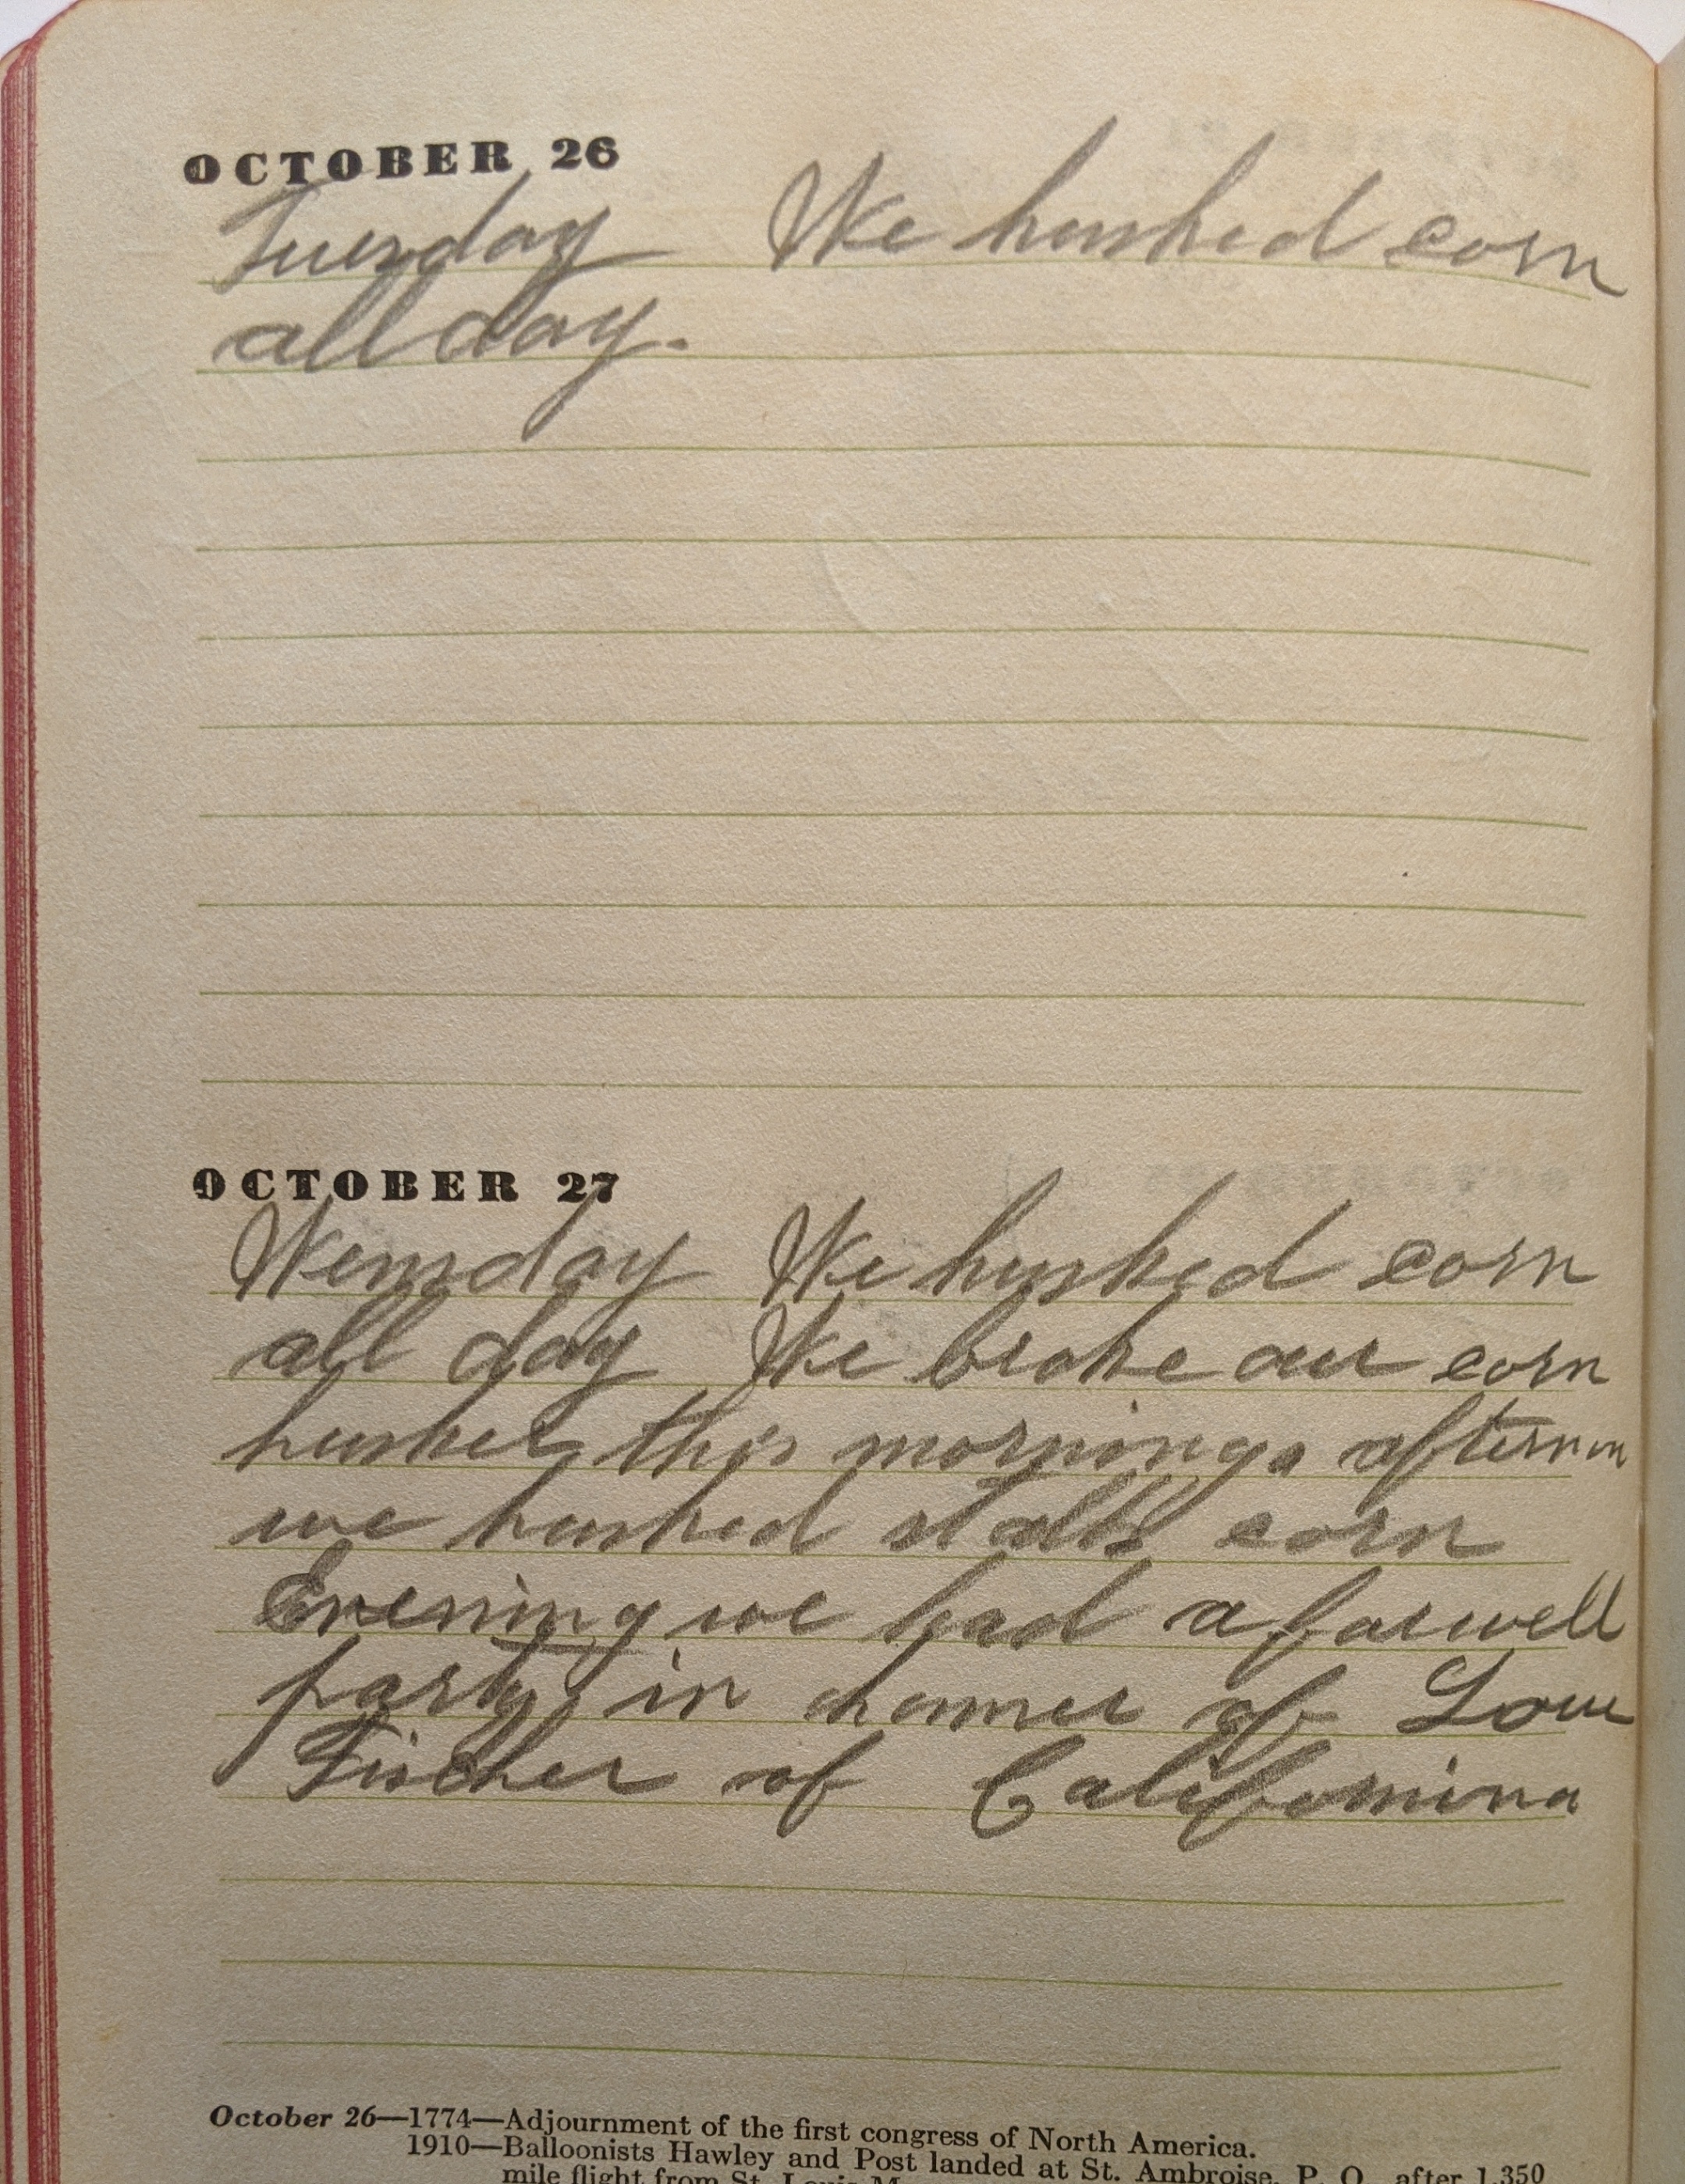 OCTOBER 26
Tuesday We husked corn
all day.
OCTOBER 27
Wensday We husked corn
all day We broke our corn
husker this morning a afternon
we husked corn
Evening we had a farwell
party in honner of Loue
Fischer of Califomina
October 26—1774—Adjournment of the first congress of North America.
1910—Balloonists Hawley and Post landed at St. Ambroise, P. Q., after 1,350
mile flight from St. Louis